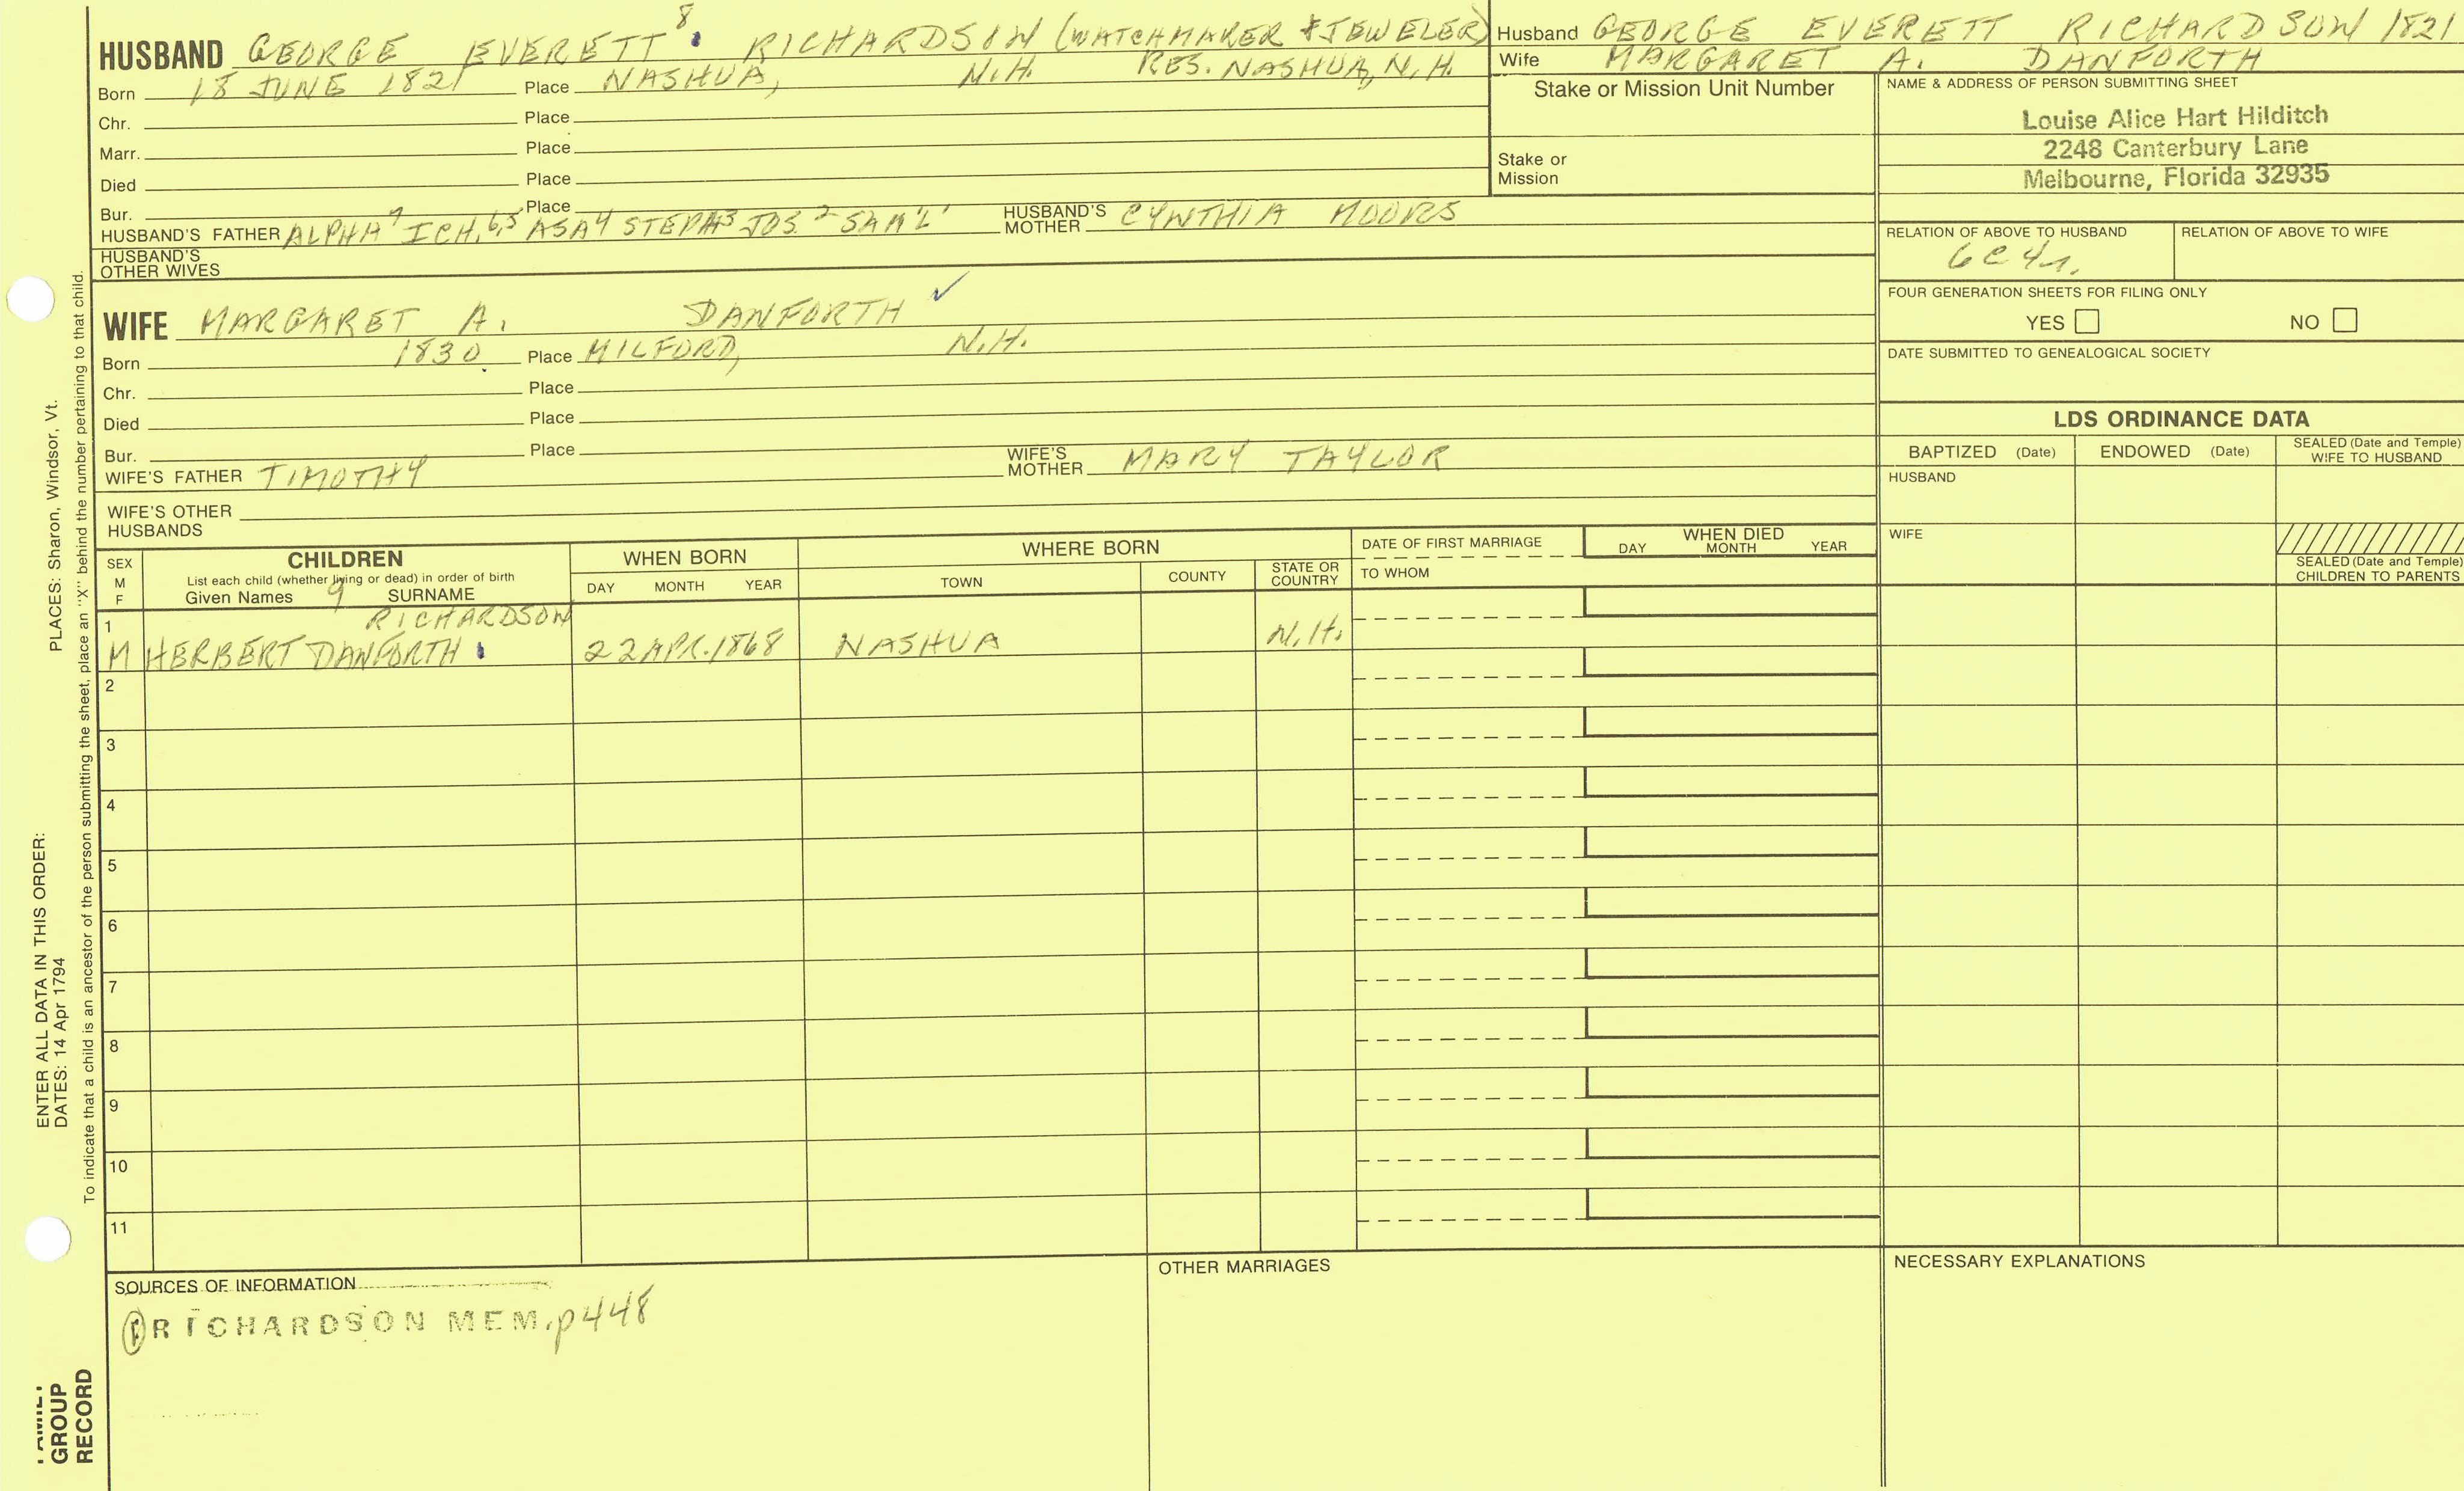 HUSBAND GEORGE EVERETT 8 RICHARDSON (WATCHMAKER & JEWELER)
Born 18 JUNE 1821 Place NASHUA, N.H. RES. NASHUA, N.H.
Chr. Place
Marr. Place
Died Place
Bur. Place
HUSBAND'S FATHER ALPHA 7 ICH. 6,5 ASA 4 STEPH 3 JOS. 2 SAM'L 1 HUSBAND'S MOTHER CYNTHIA MOORS
HUSBAND'S OTHER WIVES
Husband GEORGE EVERETT RICHARDSON 1821
Wife MARGARET A. DANFORTH
Stake or Mission Unit Number
Stake or Mission
NAME & ADDRESS OF PERSON SUBMITTING SHEET
Louise Alice Hart Hilditch
2248 Canterbury Lane
Melbourne, Florida 32935
RELATION OF ABOVE TO HUSBAND RELATION OF ABOVE TO WIFE
6C4r.
FOUR GENERATION SHEETS FOR FILING ONLY
YES NO
DATE SUBMITTED TO GENEALOGICAL SOCIETY
WIFE MARGARET A. DANFORTH ✓
Born 1830 Place MILFORD, N.H.
Chr. Place
Died Place
Bur. Place
WIFE'S FATHER TIMOTHY WIFE'S MOTHER MARY TAYLOR
WIFE'S OTHER HUSBANDS
LDS ORDINANCE DATA
BAPTIZED (Date) ENDOWED (Date) SEALED (Date and Temple) WIFE TO HUSBAND
HUSBAND
WIFE
SEALED (Date and Temple) CHILDREN TO PARENTS
SEX M F
CHILDREN
List each child (whether living or dead) in order of birth
Given Names 9 SURNAME
WHEN BORN
DAY MONTH YEAR
WHERE BORN
TOWN COUNTY STATE OR COUNTRY
DATE OF FIRST MARRIAGE
TO WHOM
WHEN DIED
DAY MONTH YEAR
1 RICHARDSON
M HERBERT DANFORTH 22 APR. 1868 NASHUA N.H.
2
3
4
5
6
7
8
9
10
11
SOURCES OF INFORMATION
RICHARDSON MEM. p448
OTHER MARRIAGES
NECESSARY EXPLANATIONS
ENTER ALL DATA IN THIS ORDER:
DATES: 14 Apr 1794
PLACES: Sharon, Windsor, Vt.
To indicate that a child is an ancestor of the person submitting the sheet, place an "X" behind the number pertaining to that child.
GROUP
RECORD